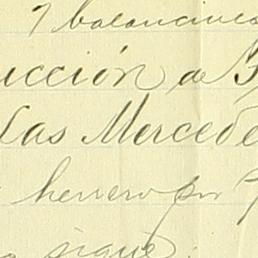 7 balancines
ucción de
las Mercede
herrero por
sigue.